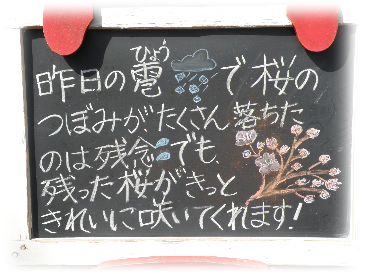 昨日の雹で桜の
ひょう
つぼみがたくさん落ちた
のは残念でも、
残った桜がきっと
きれいに咲いてくれます!